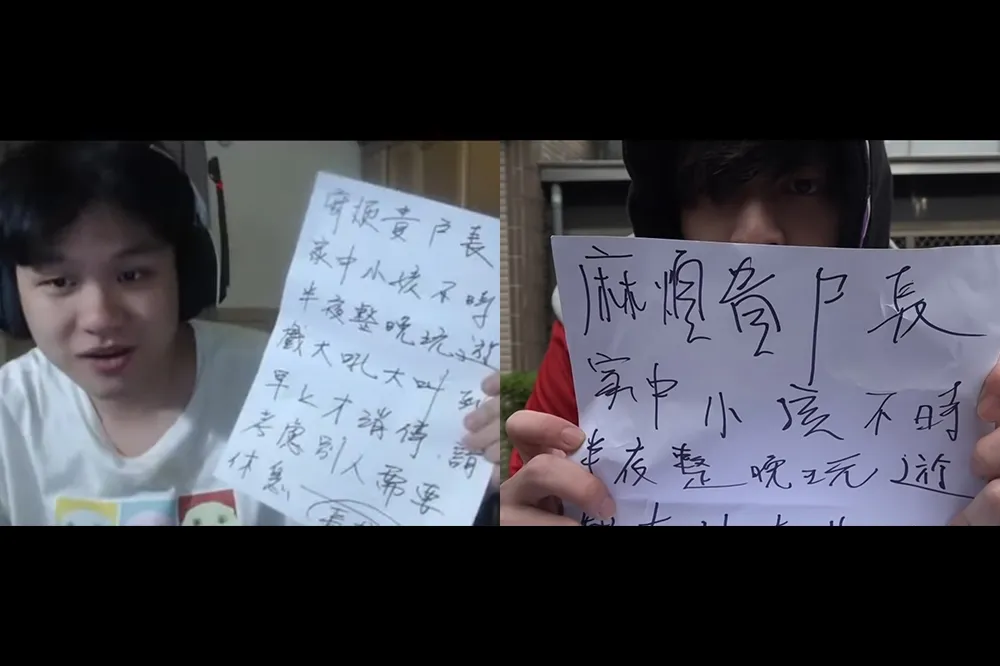 麻煩貴戶長
家中小孩不時
半夜整晚玩遊
戲大吼大叫到
早上才消停，請
考慮別人需要
休息
麻煩貴戶長
家中小孩不時
半夜整晚玩遊